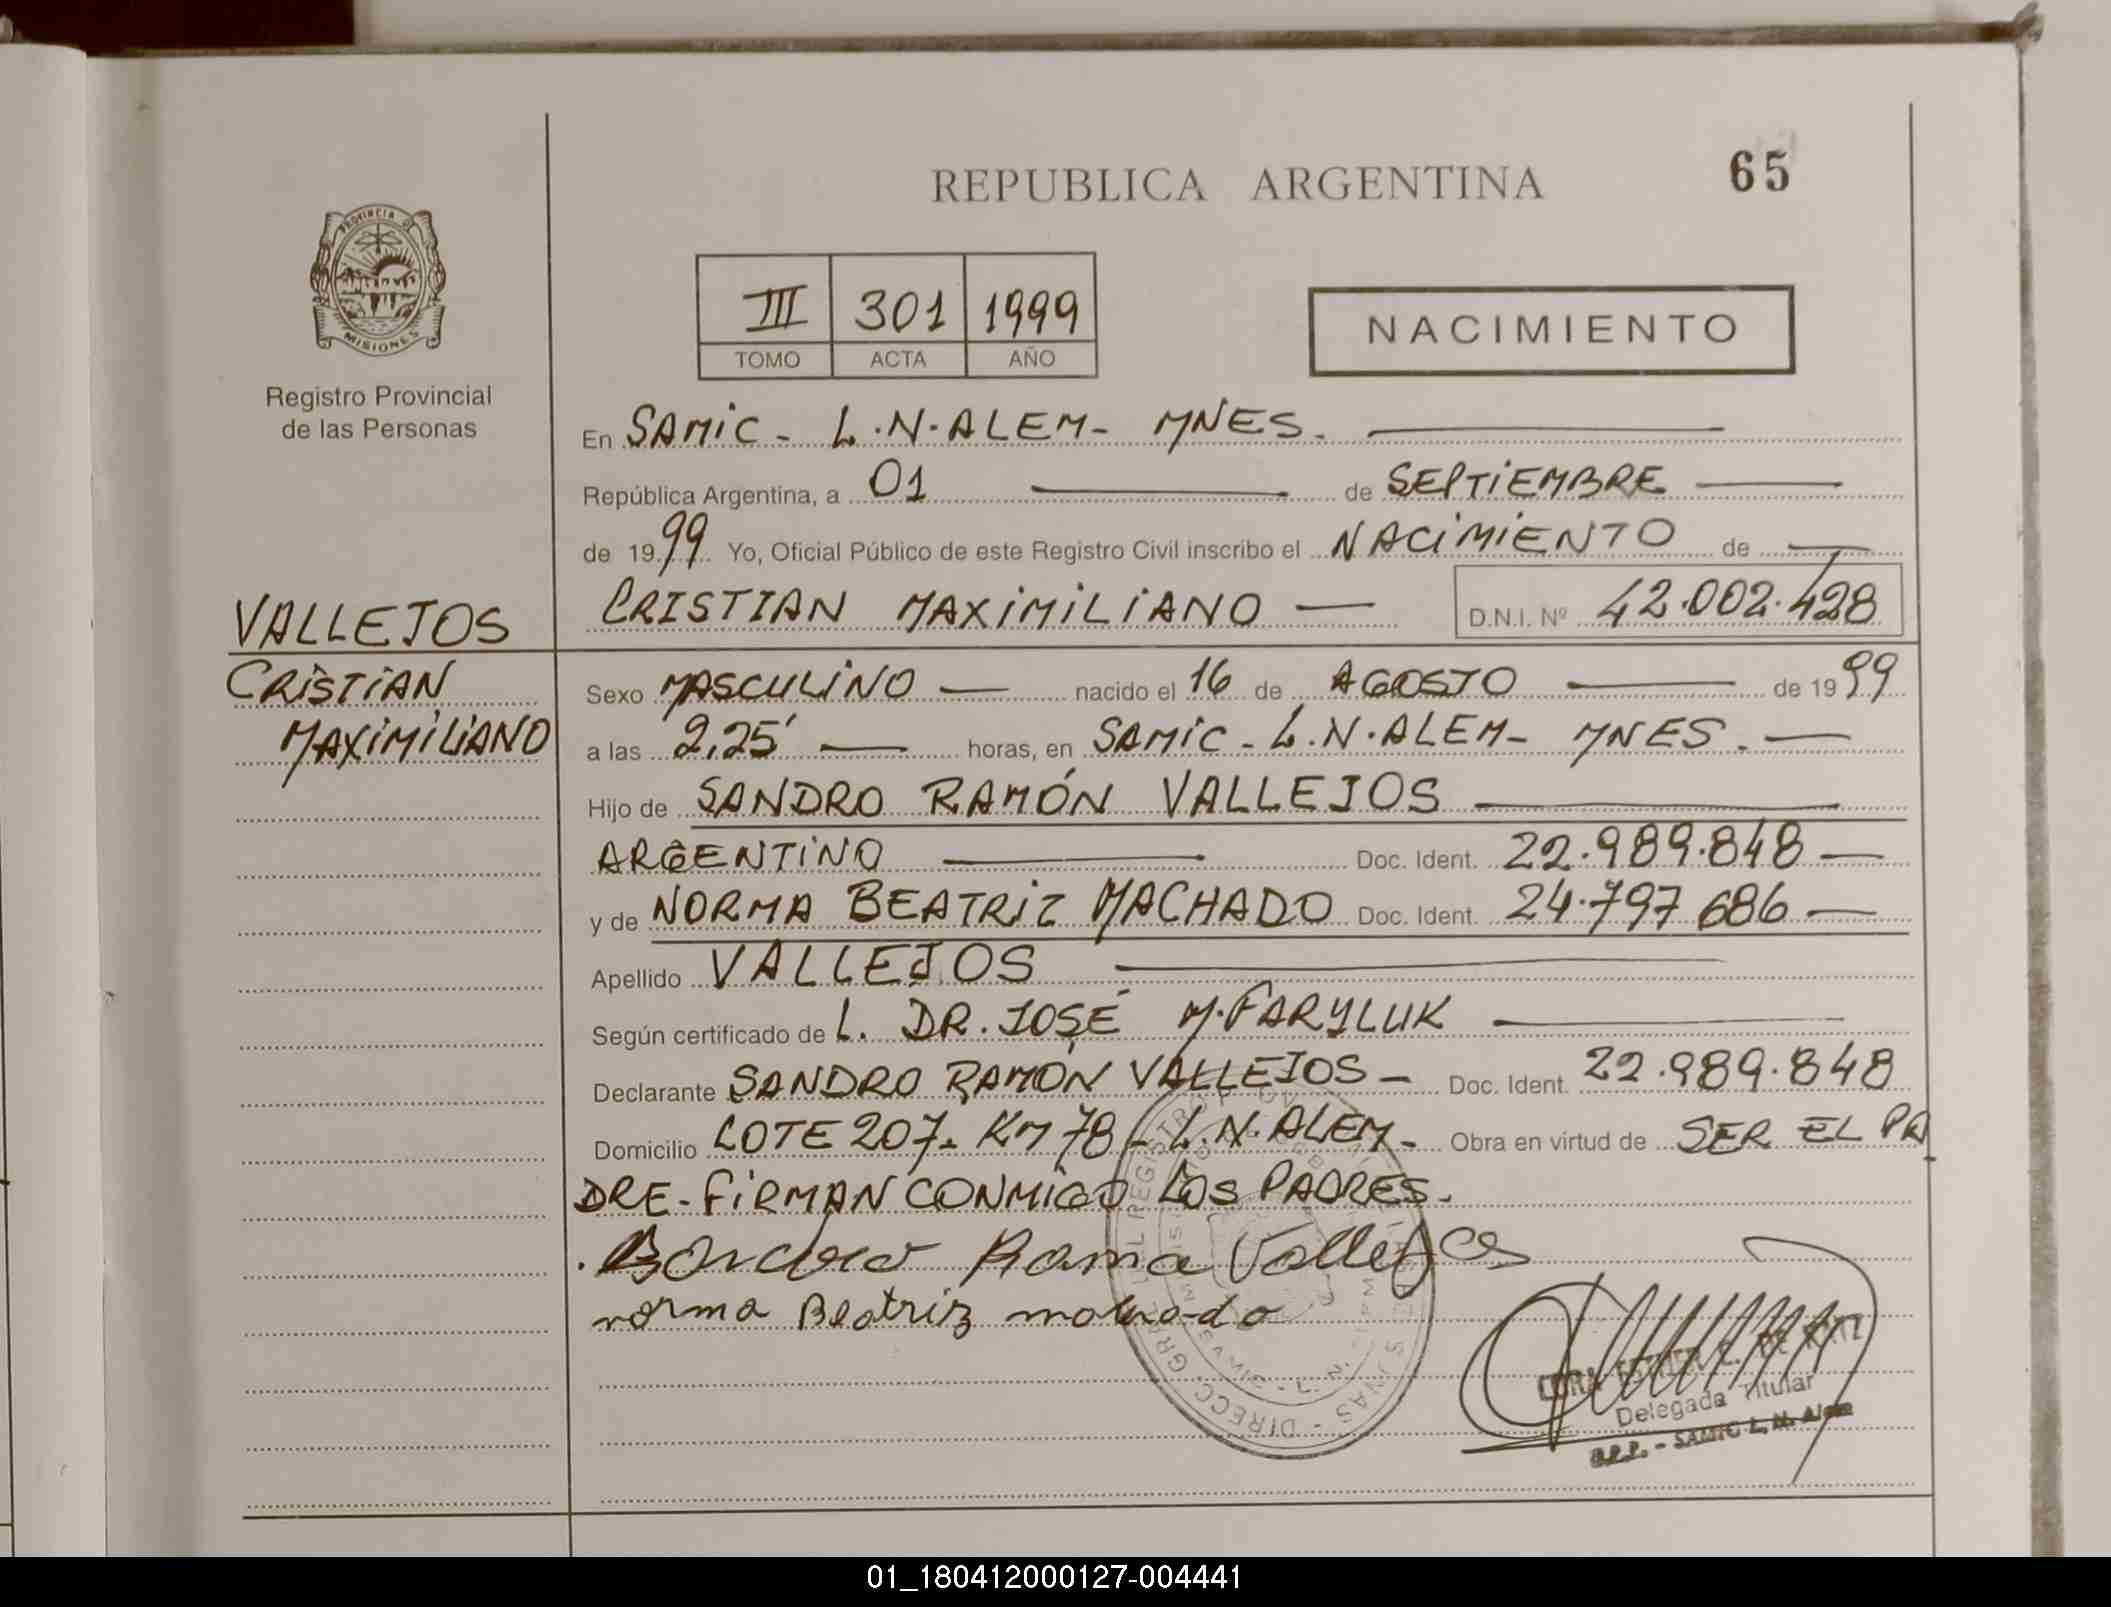 REPUBLICA ARGENTINA
65
PROVINCIA DE
MISIONES
Registro Provincial
de las Personas
III 301 1999
TOMO ACTA AÑO
NACIMIENTO
En SAMIC - L.N. ALEM - MNES.
República Argentina, a 01 de SEPTIEMBRE
de 1999 Yo, Oficial Público de este Registro Civil inscribo el NACIMIENTO de
CRISTIAN MAXIMILIANO D.N.I. Nº 42.002.428
VALLEJOS
CRISTIAN
MAXIMILIANO
Sexo MASCULINO nacido el 16 de AGOSTO de 1999
a las 2,25' horas, en SAMIC - L.N. ALEM - MNES.
Hijo de SANDRO RAMÓN VALLEJOS
ARGENTINO Doc. Ident. 22.989.848
y de NORMA BEATRIZ MACHADO Doc. Ident. 24.797.686
Apellido VALLEJOS
Según certificado de L. DR. JOSÉ M. FARYLUK
Declarante SANDRO RAMÓN VALLEJOS - Doc. Ident. 22.989.848
Domicilio LOTE 207. KM 78 - L.N. ALEM - Obra en virtud de SER EL PA
DRE - FIRMAN CONMIGO LOS PADRES.
norma Beatriz
Delegada Titular
SAMIC L. N. Alem
01_180412000127-004441